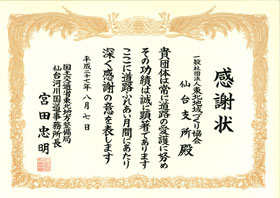 感謝状
一般社団法人東北地域づくり協会
仙台支所殿
貴団体は常に道路の愛護に努め
その功績は誠に顕著であります
ここに道路ふれあい月間にあたり
深く感謝の意を表します
平成二十七年八月七日
国土交通省東北地方整備局
仙台河川国道事務所長
宮田忠明